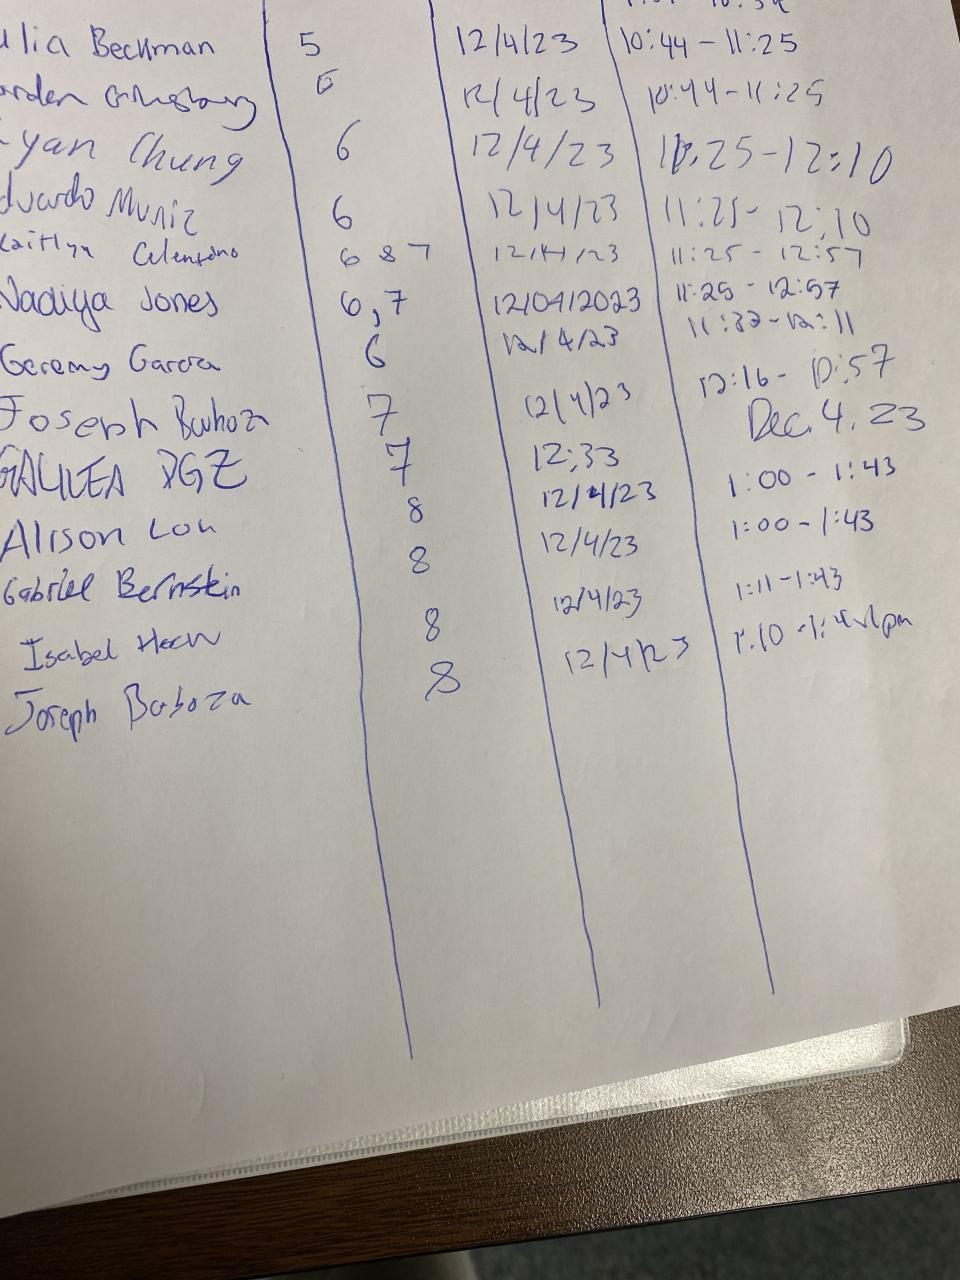 Beckman 5 12/4/23 10:44 - 11:25
12/4/23 10:44-11:25
Chung 6 12/4/23 11:25-12:10
Muniz 6 12/4/23 11:25- 12:10
Kaitlyn 6 & 7 12/4/23 11:25 - 12:57
Nadiya Jones 6,7 12/04/2023 11:25 - 12:57
Geremy Garcia 6 12/4/23 11:33-12:11
Joseph Barboza 7 12/4/23 12:16- 12:57
GALILEA DGZ 7 12:33 Dec. 4. 23
Alison Lou 8 12/4/23 1:00 - 1:43
Gabriel Bernstein 8 12/4/23 1:00-1:43
Isabel 8 12/4/23 1:11-1:43
Joseph Barboza 8 12/4/23 1:10